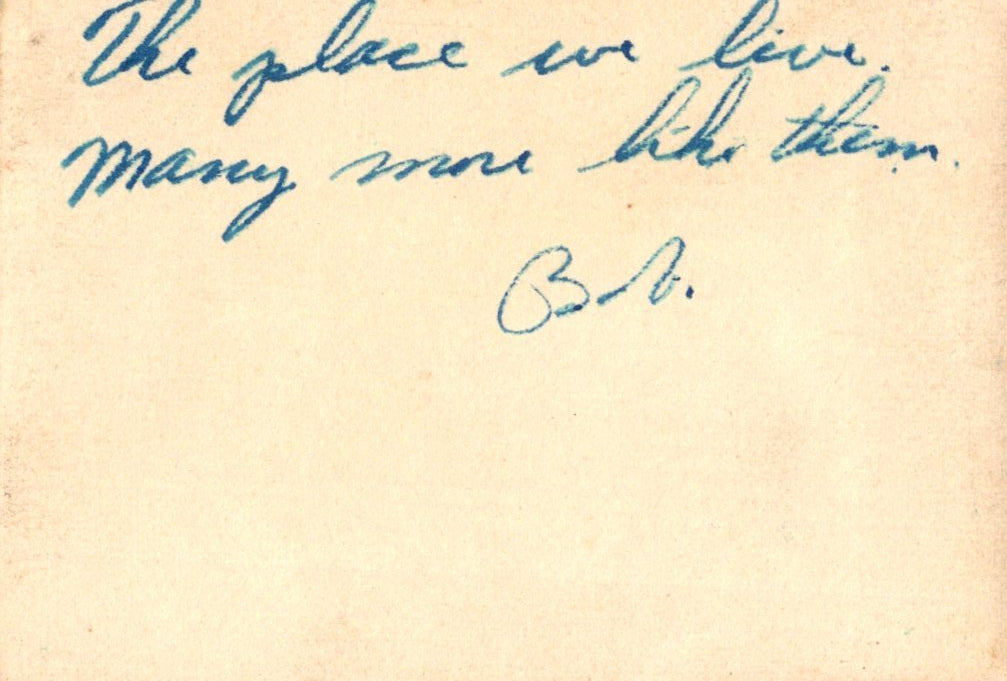 The place we live.
Many more like them.
Bob.